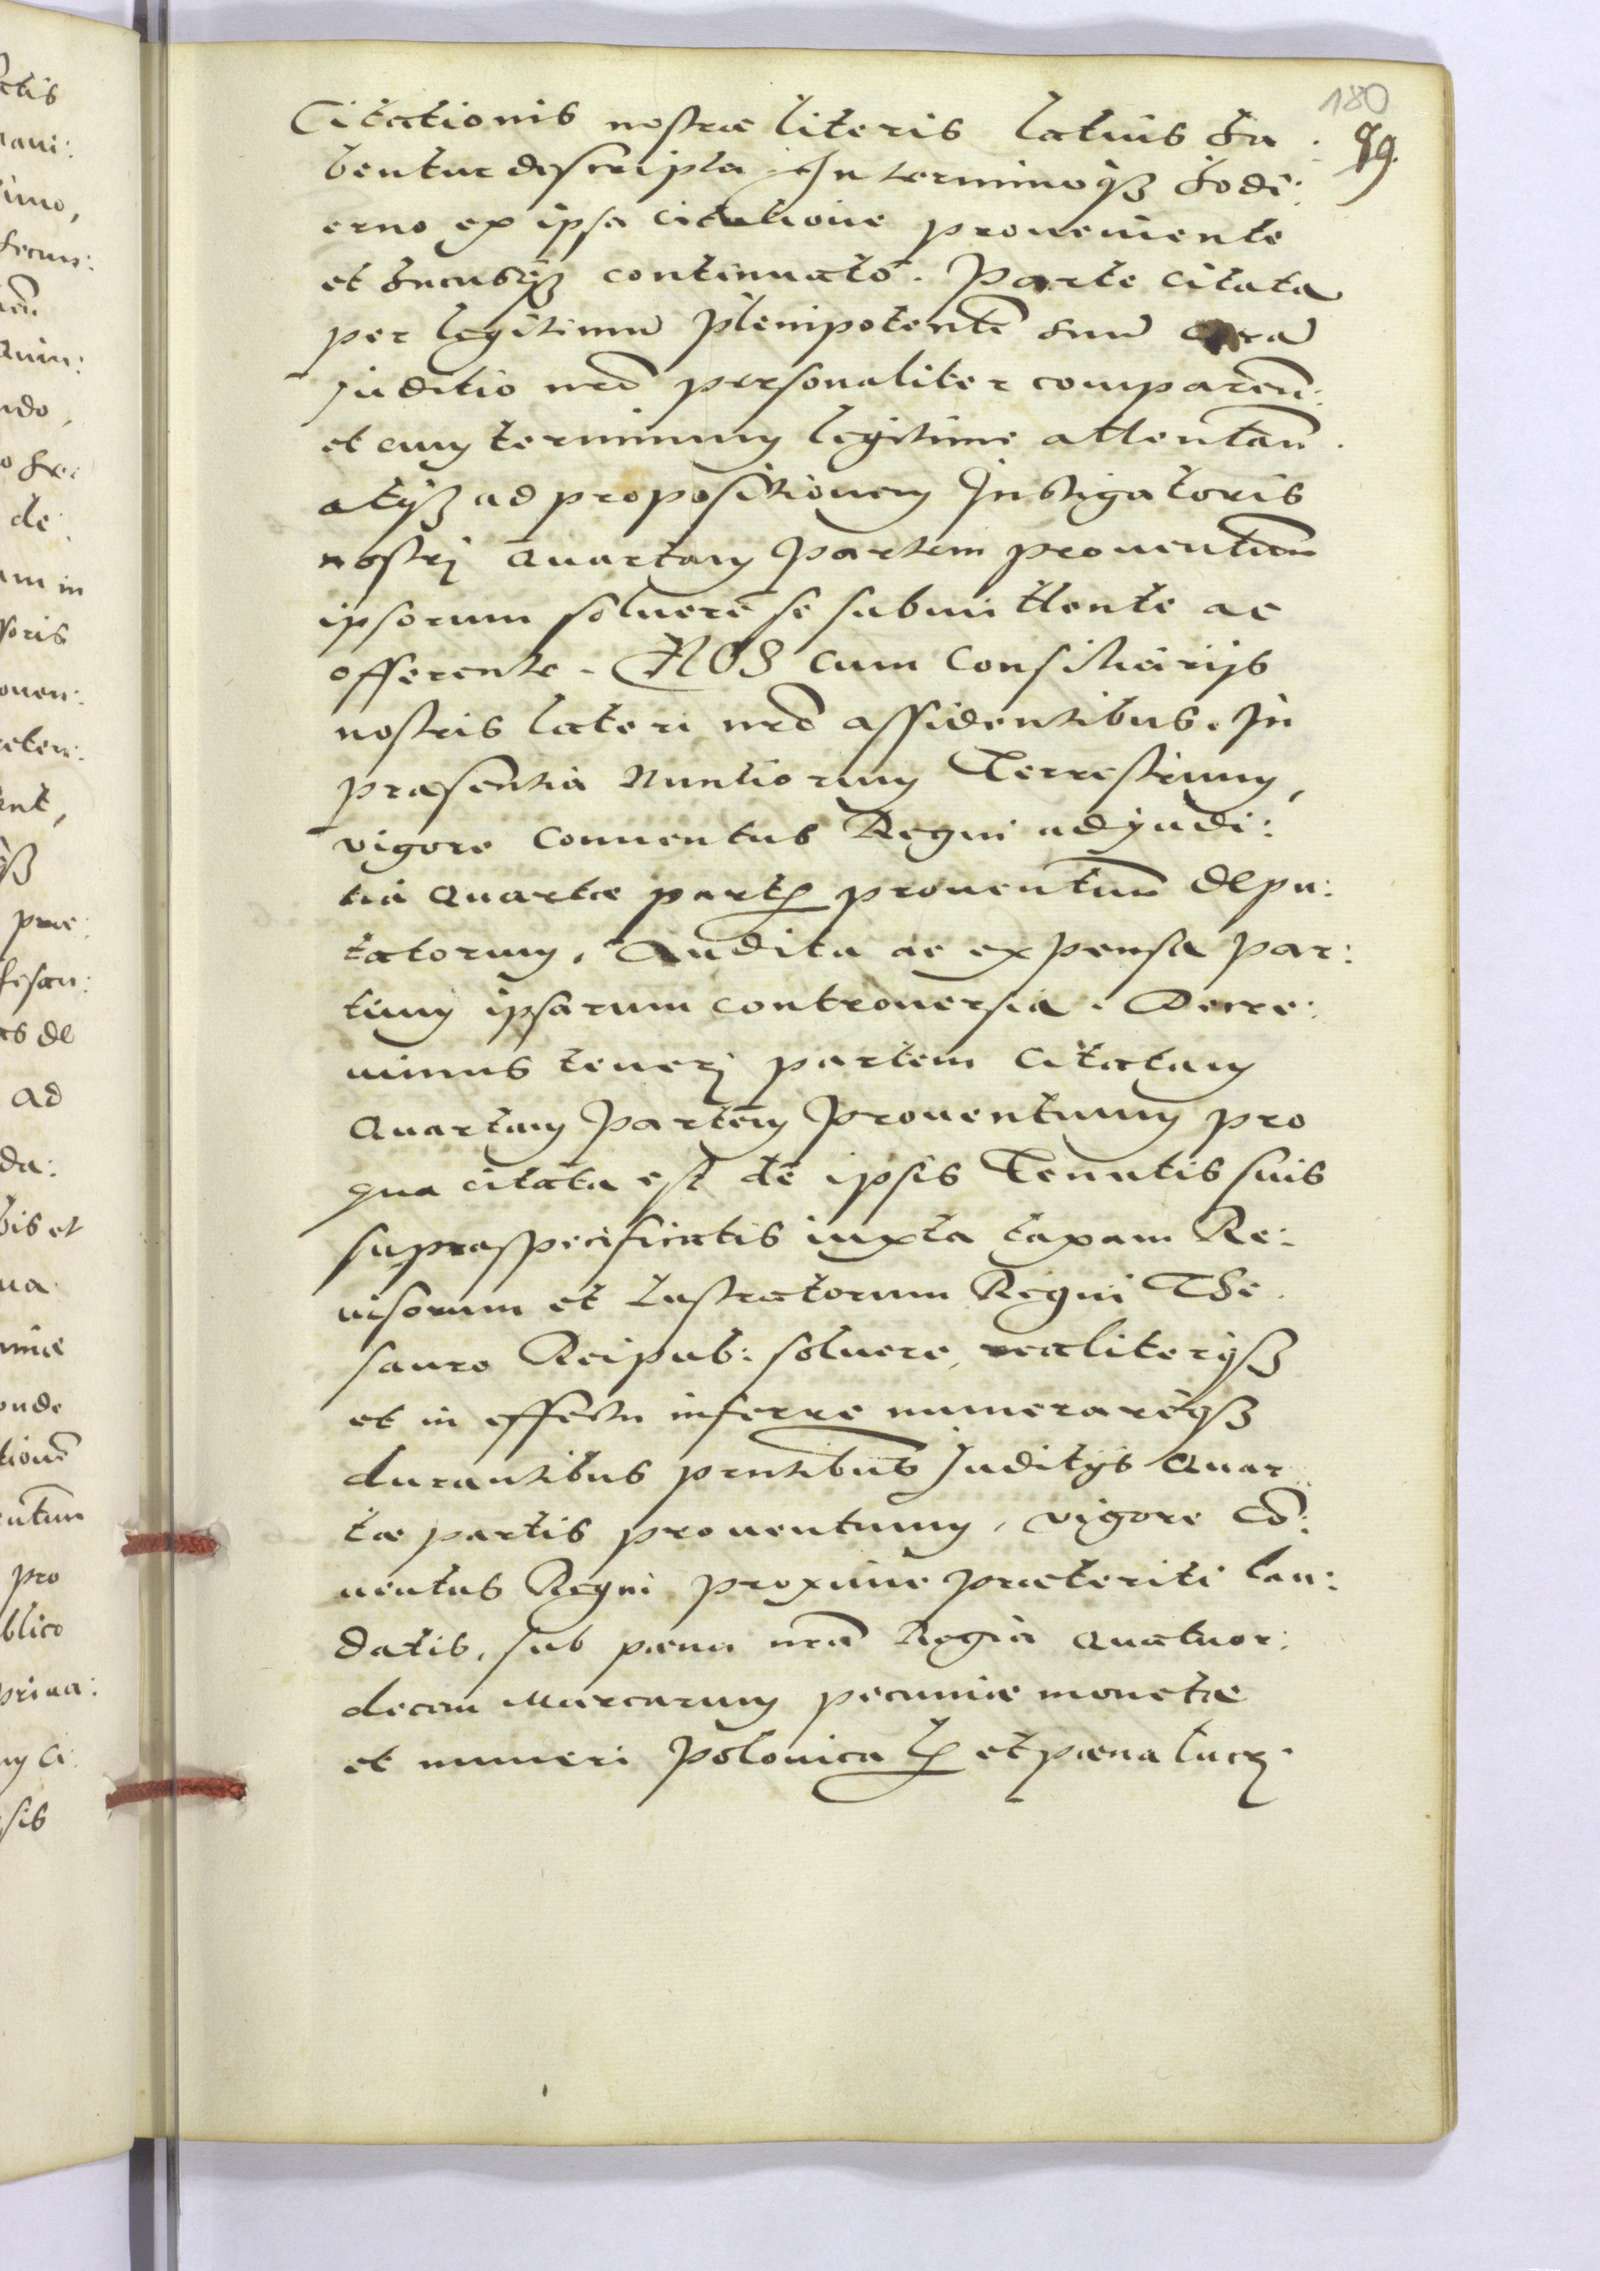 180
99.
Citationis nostræ literis latius ha:
bentur descripta. In terminoq₃ hodi:
erno ex ipsa citatione proueniente
et hucusq₃ continuato. Parte Citata
per legitimũ Plenipotentẽ suũ corã
Juditio nrõ personaliter comparẽn:
et cum terminum legitime attentãn.
atq₃ ad propositionem Instigatoris
nostrj Quartam Partem prouentuũ
ipsorum soluere se submittente ac
offerente. NOS cum Consiliarijs
nostris lateri nrõ assidentibus. In
præsentia Nuntiorum Terrestrium,
vigore Conuentus Regni ad judi:
tia Quartæ partis prouentuum depu:
tatorum, Audita ac expensa par:
tium ipsarum controuersia. Decre:
uimus tenerj partem Citatam
Quartam Partem Prouentuum pro
qua citata est de ipsis Tenutis suis
supraspecificatis iuxta taxam Re:
uisorum et Lustratorum Regni The
sauro Reipub: soluere, realiterq₃
et in effectu inferre numerareq₃
durantibus pñtibus Juditijs Quar
tæ partis prouentuum, vigore Cõ:
uentus Regni proxime præteriti lau:
datis, sub pæna nrã Regia Quatuor:
decem Marcarum pecuniæ monetæ
et numeri Polonicalis et pæna lucrj.